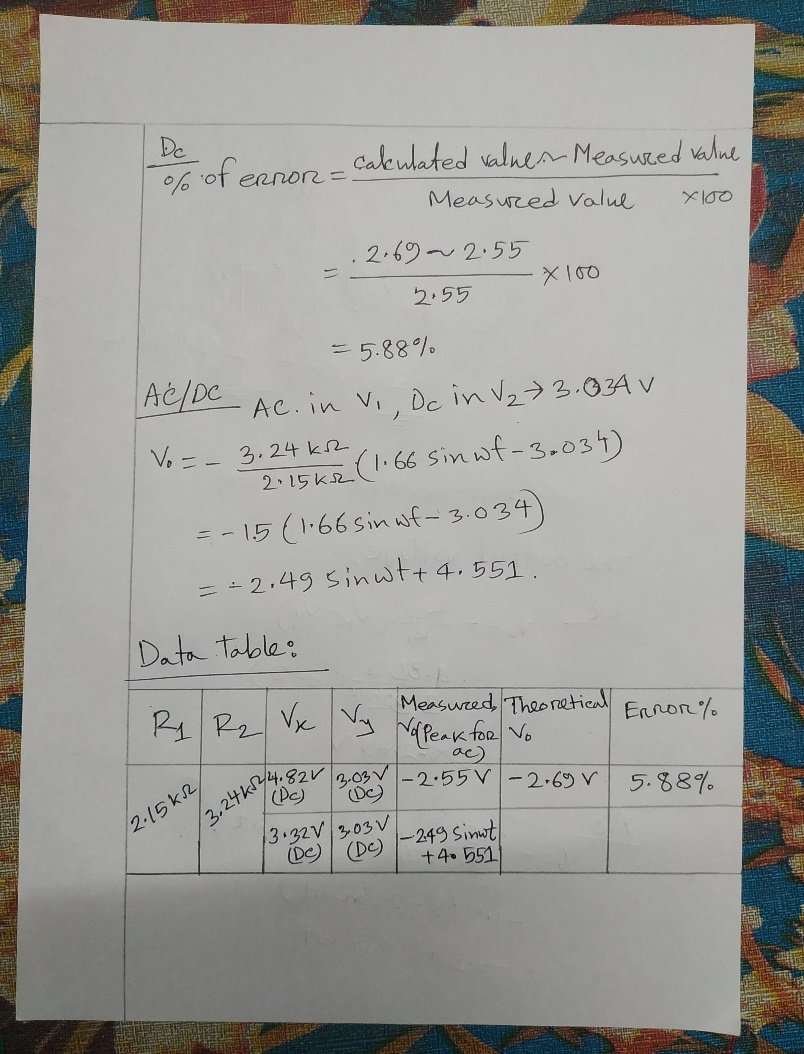 Dc
% of error = calculated value ~ Measured value
Measured value ×100
= 2.69 ~ 2.55
2.55 ×100
= 5.88%
AC/DC AC. in V1, Dc in V2 → 3.034 V
Vo = - 3.24 kΩ
2.15 kΩ (1.66 sin wt - 3.034)
= - 1.5 (1.66 sin wt - 3.034)
= - 2.49 sin wt + 4.551.
Data table:
R1 R2 Vx Vy Measured Vo (Peak for ac) Theoretical Vo Error%
2.15 kΩ 3.24 kΩ 4.82V (DC) 3.03V (DC) -2.55 V -2.69 V 5.88%
3.32V (DC) 3.03V (DC) -2.49 sinwt +4.551